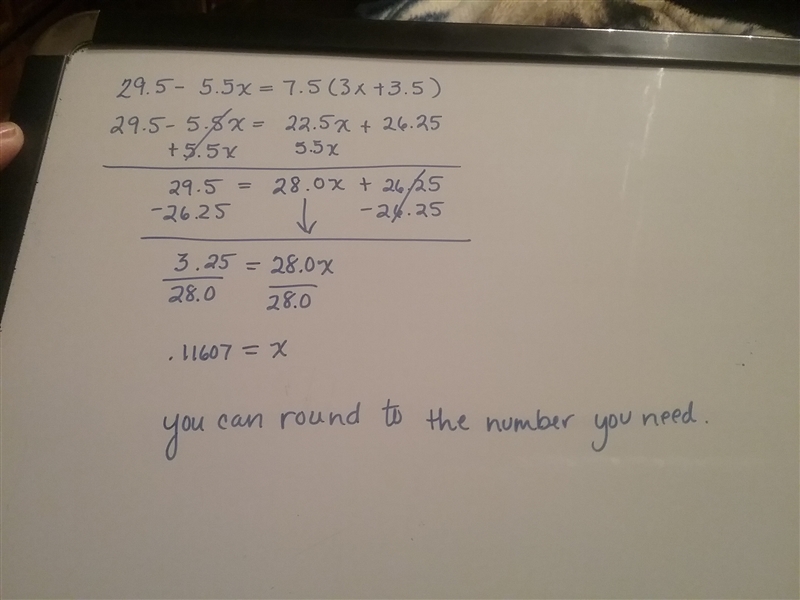 29.5 - 5.5x = 7.5 (3x + 3.5)
29.5 - 5.5x = 22.5x + 26.25
+5.5x 5.5x
29.5 = 28.0x + 26.25
-26.25 ↓ -26.25
3.25 = 28.0x
28.0 28.0
.11607 = x
you can round to the number you need.